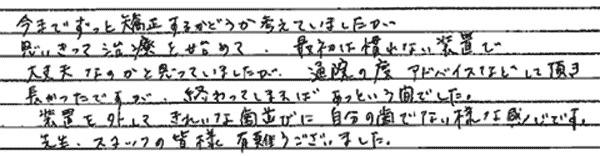 今までずっと矯正するかどうか考えていましたが
思いきって治療を始めて、最初は慣れない装置で
大丈夫なのかと思っていましたが、通院の度アドバイスなどして頂き
長かったですが、終わってしまえばあっという間でした。
装置を外して きれいな歯並びに自分の歯でない様な感じです。
先生・スタッフの皆様 有難うございました。